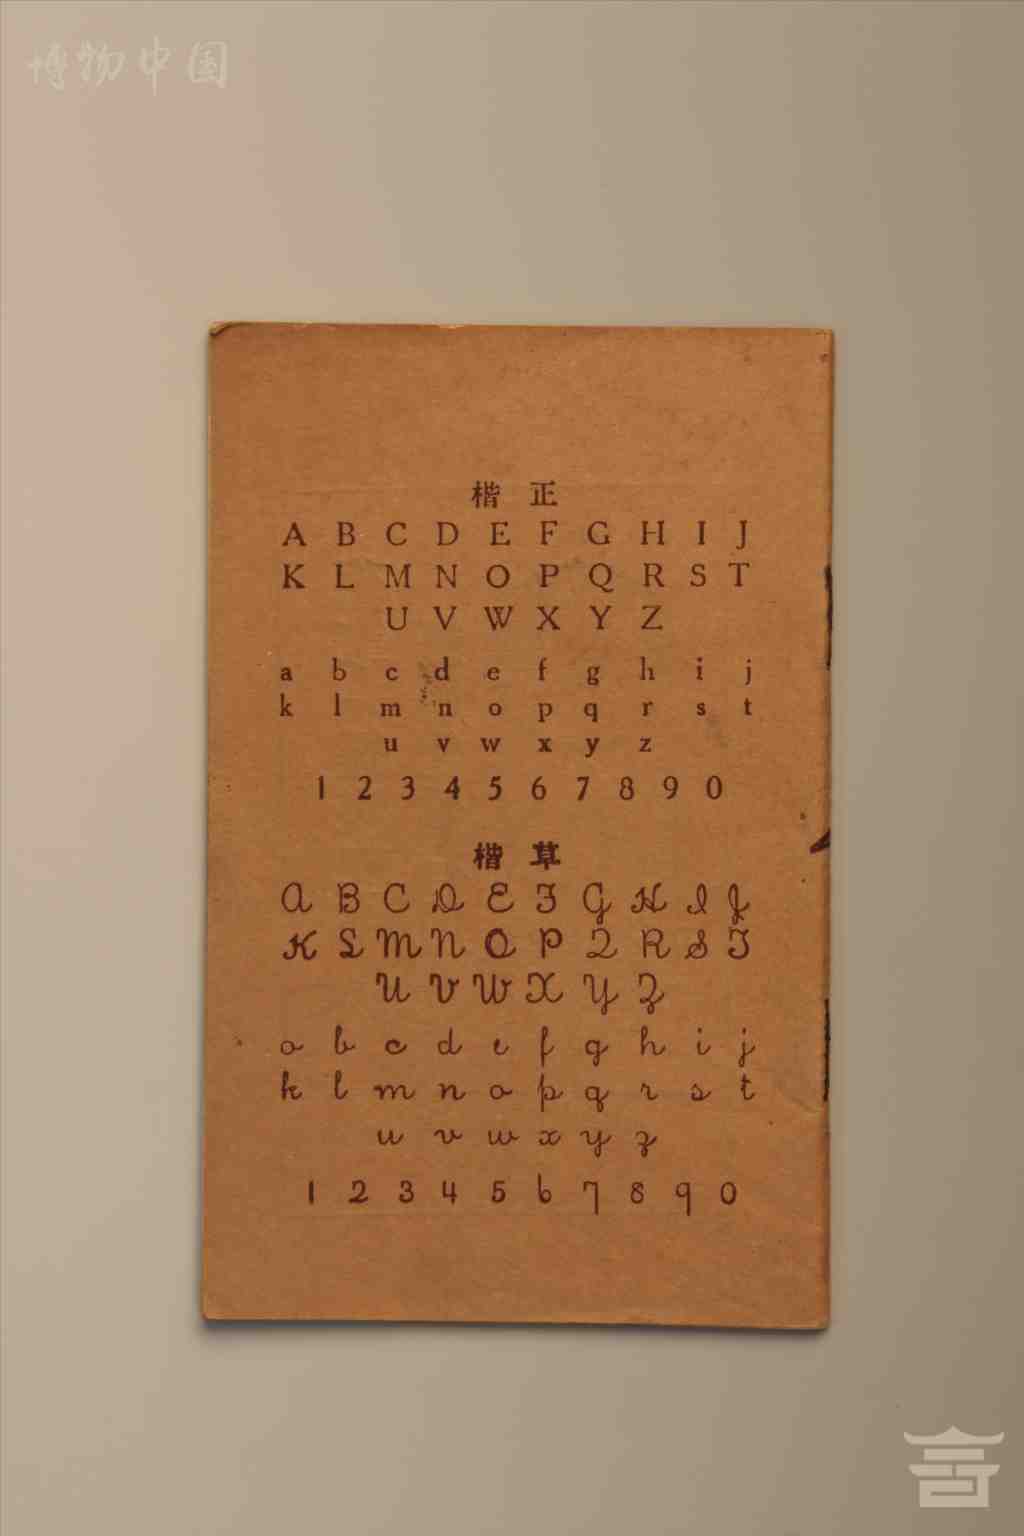 博物中国
楷 正
A B C D E F G H I J
K L M N O P Q R S T
U V W X Y Z
a b c d e f g h i j
k l m n o p q r s t
u v w x y z
1 2 3 4 5 6 7 8 9 0
楷 草
A B C D E F G H I J
K L M N O P Q R S T
U V W X Y Z
a b c d e f g h i j
k l m n o p q r s t
u v w x y z
1 2 3 4 5 6 7 8 9 0